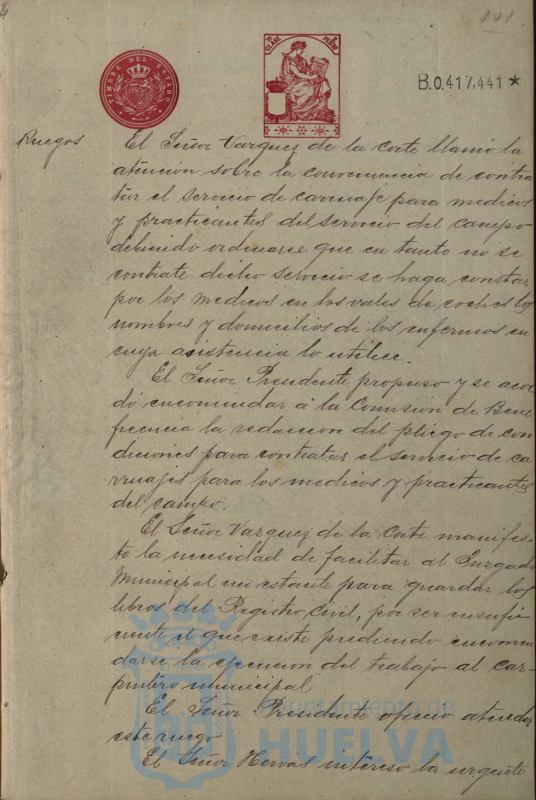 101
TIMBRE DEL ESTADO
B.0.417,441 *
Ruegos
El Señor Vazquez de la Corte llamó la
atencion sobre la conveniencia de contra-
tar el servicio de carruaje para medicos
y practicantes del servicio del campo
debiendo ordenarse que en tanto no se
contrate dicho servicio se haga constar
por los medicos en los vales de coches los
nombres y domicilios de los enfermos en
cuya asistencia lo utilice.
El Señor Presidente propuso y se acor
dó encomendar á la Comision de Bene
ficencia la redaccion del pliego de con
diciones para contratar el servicio de ca
rruajes para los medicos y practicantes
del campo.
El Señor Vazquez de la Corte manifes-
tó la necesidad de facilitar al Juzgado
Municipal un estante para guardar los
libros del Registro Civil, por ser insufi-
ciente el que existe pudiendo encomen
darse la ejecucion del trabajo al car-
pintero municipal
El Señor Presidente ofreció atender
este ruego
El Señor Hervas intereso la urgente
Ayuntamiento de
HUELVA